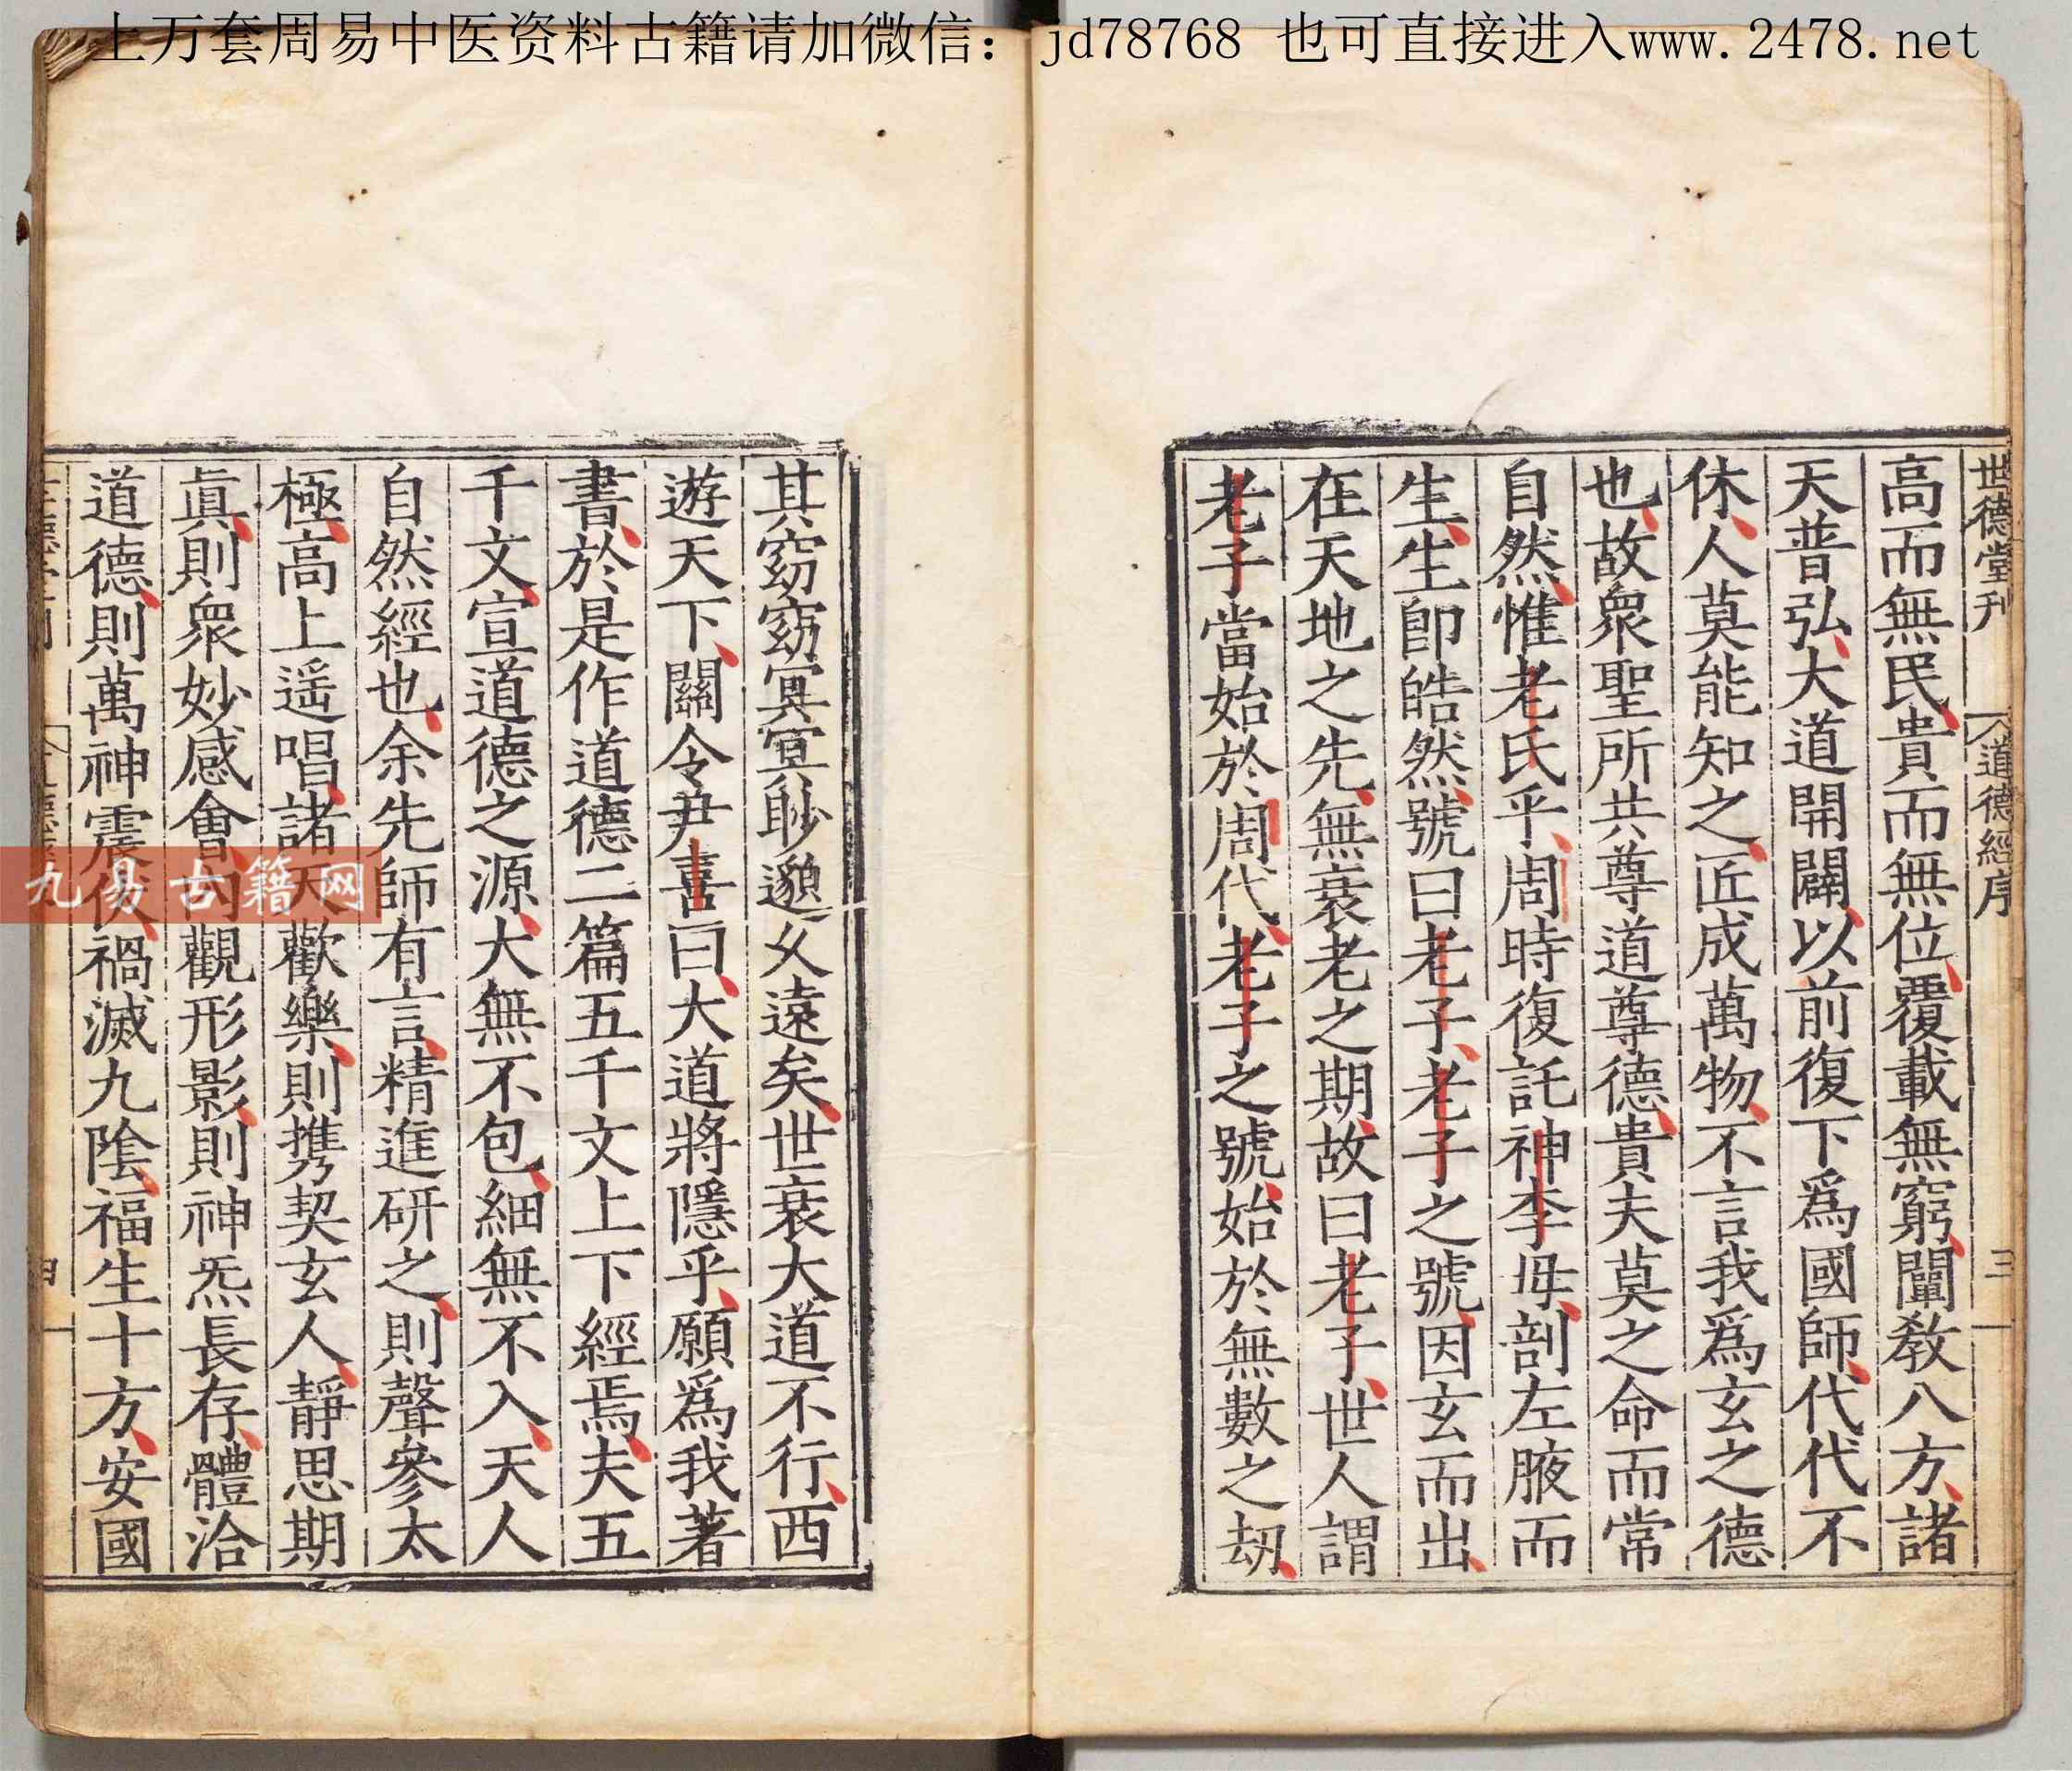 上万套周易中医资料古籍请加微信：jd78768 也可直接进入www.2478.net
世德堂刊 道德經序 三
高而無民貴而無位覆載無窮闡教八方諸
天普弘大道開闢以前復下爲國師代代不
休人莫能知之匠成萬物不言我爲玄之德
也故衆聖所共尊道尊德貴夫莫之命而常
自然惟老氏乎周時復託神李母剖左腋而
生生卽皓然號曰老子老子之號因玄而出
在天地之先無衰老之期故曰老子世人謂
老子當始於周代老子之號始於無數之劫
其窈窈冥冥眇邈久遠矣世衰大道不行西
遊天下關令尹喜曰大道將隱乎願爲我著
書於是作道德二篇五千文上下經焉夫五
千文宣道德之源大無不包細無不入天人
自然經也余先師有言精進研之則聲參太
極高上遥唱諸天歡樂則携契玄人靜思期
眞則衆妙感會内觀形影則神炁長存體洽
道德則萬神震伏禍滅九陰福生十方安國
四
九易古籍网